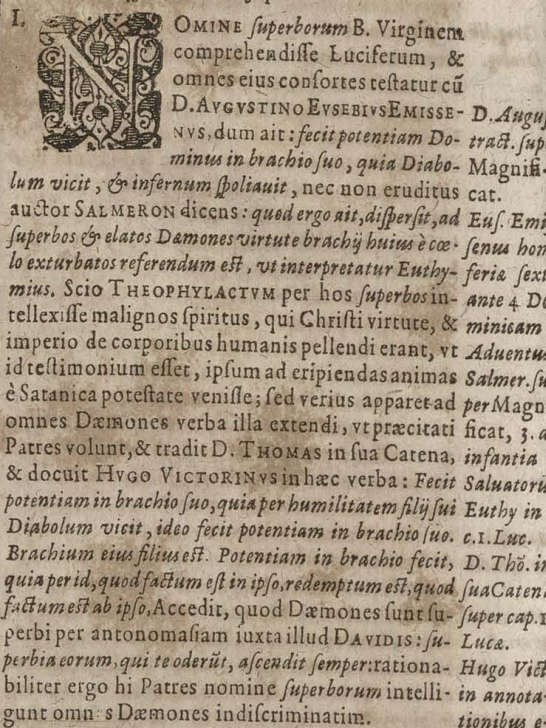 I.
NOMINE superborum B. Virginem
comprehendisse Luciferum, &
omnes eius consortes testatur cũ
D. AVGVSTINO EVSEBIVS EMISSE-
NVS, dum ait: fecit potentiam Do-
minus in brachio suo, quia Diabo-
lum vicit, & infernum spoliauit, nec non eruditus
auctor SALMERON dicens: quod ergo ait, dispersit, ad
superbos & elatos Dæmones virtute brachij huius è cœ-
lo exturbatos referendum est, vt interpretatur Euthy-
mius. Scio THEOPHYLACTVM per hos superbos in-
tellexisse malignos spiritus, qui Christi virtute, &
imperio de corporibus humanis pellendi erant, vt
id testimonium esset, ipsum ad eripiendas animas
è Satanica potestate venisse; sed verius apparet ad
omnes Dæmones verba illa extendi, vt præcitati
Patres volunt, & tradit D. THOMAS in sua Catena,
& docuit HVGO VICTORINVS in hæc verba: Fecit
potentiam in brachio suo, quia per humilitatem filij sui
Diabolum vicit, ideo fecit potentiam in brachio suo.
Brachium eius filius est. Potentiam in brachio fecit,
quia per id, quod factum est in ipso, redemptum est, quod
factum est ab ipso, Accedit, quod Dæmones sunt su-
perbi per antonomasiam iuxta illud DAVIDIS: su-
perbia eorum, qui te oderũt, ascendit semper: rationa-
biliter ergo hi Patres nomine superborum intelli-
gunt omn s Dæmones indiscriminatim.
D. Augus
tract. sup
Magnifi-
cat.
Eus. Emi
senus hom
feria sext
ante 4 Do
minicam
Aduentus
Salmer. su
per Magn
ficat, 3. a
infantia
Saluatoris
Euthy in
c. 1. Luc.
D. Thõ. in
sua Caten
super cap. 1
Lucæ.
Hugo Vict
in annota-
tionibus a